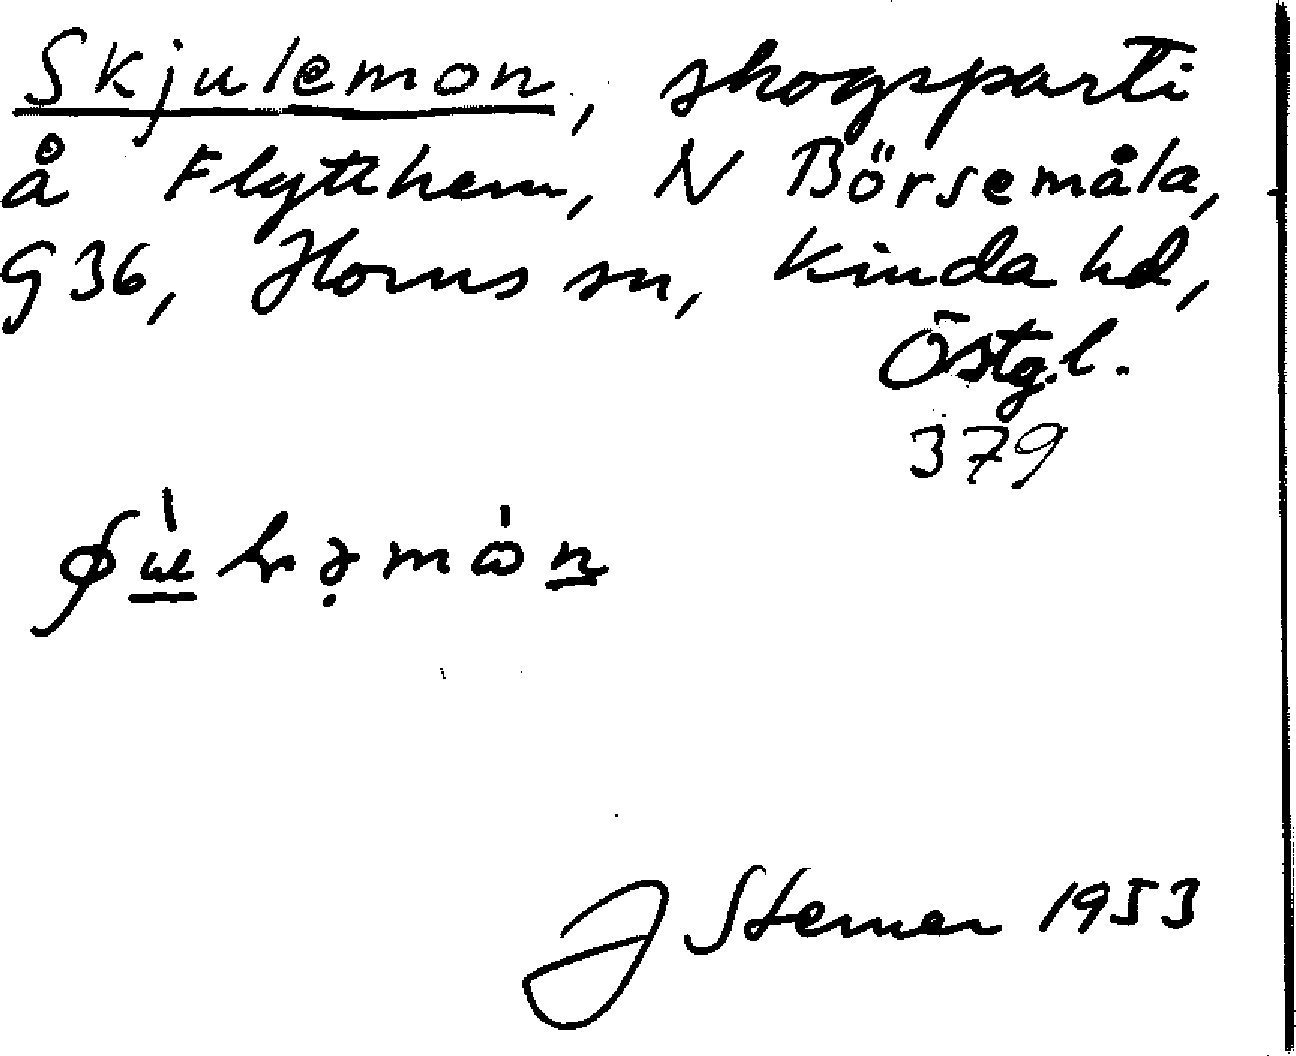 Skjulemon, skogsparti
å Flytthem, N Börsemåla,
G 36, Horns sn, Kinda hd,
Östg.l.
379
J Sterner 1953